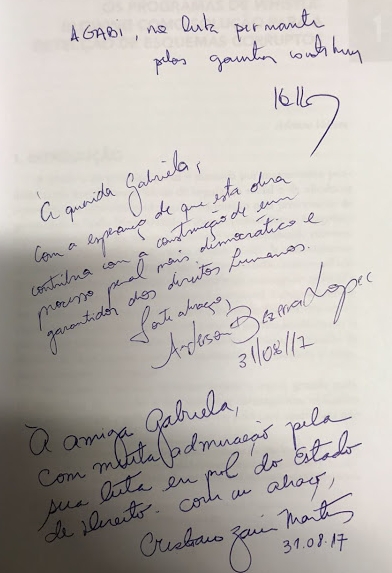 À GABI, na luta permanente
pelas garantias
À querida Gabriela,
com a esperança de que esta obra
contribua com a construção de um
processo penal mais democrático e
garantidor dos direitos humanos.
Forte abraço,
Anderson Bezerra Lopes
31/08/17
À amiga Gabriela,
com muita admiração pela
sua luta em prol do Estado
de Direito. com um abraço,
Cristiano Zanin Martins
31.08.17